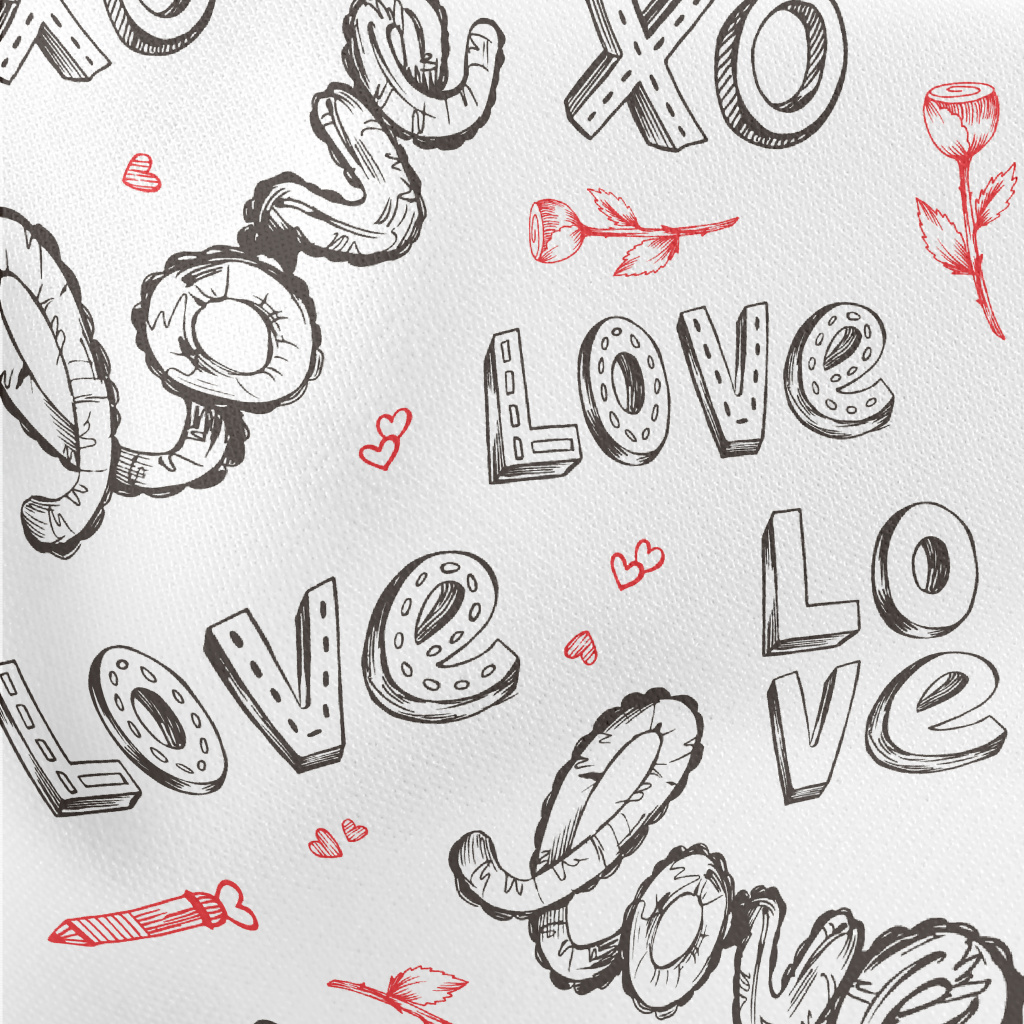 XO
love
XO
LOVe
LOVe
LO
Ve
love